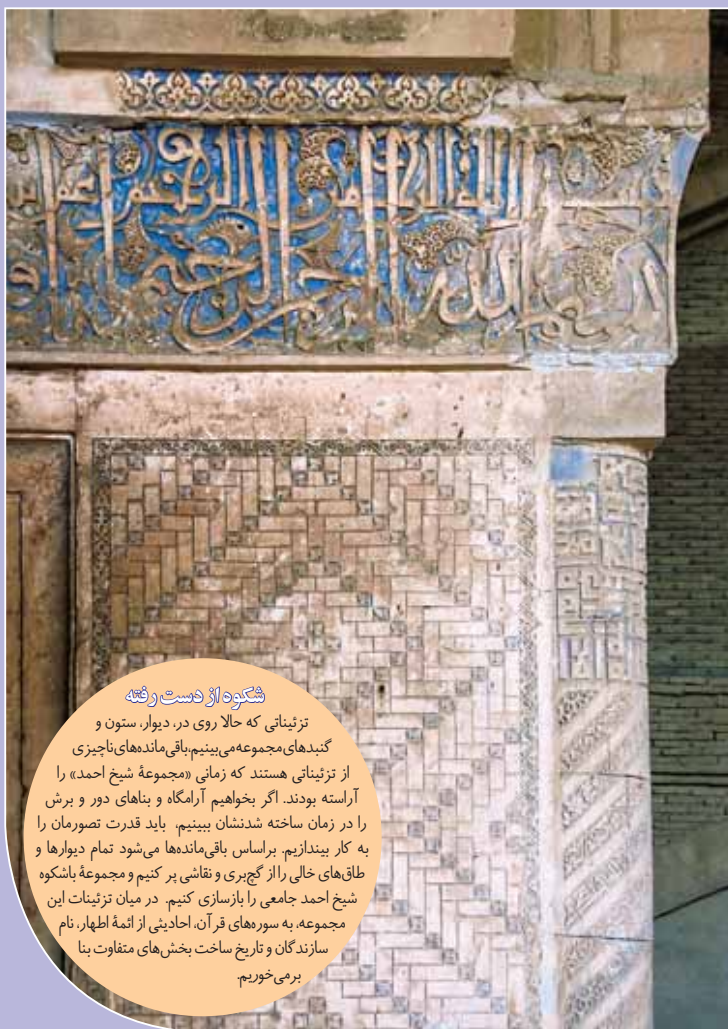 بسم الله الرحمن الرحیم
شکوه از دست رفته
تزئیناتی که حالا روی در، دیوار، ستون و
گنبدهای مجموعه می‌بینیم،باقی‌مانده‌های ناچیزی
از تزئیناتی هستند که زمانی «مجموعهٔ شیخ احمد» را
آراسته بودند. اگر بخواهیم آرامگاه و بناهای دور و برش
را در زمان ساخته شدنشان ببینیم، باید قدرت تصورمان را
به کار بیندازیم. براساس باقی‌مانده‌ها می‌شود تمام دیوارها و
طاق‌های خالی را از گچ‌بری و نقاشی پر کنیم و مجموعهٔ باشکوه
شیخ احمد جامعی را بازسازی کنیم. در میان تزئینات این
مجموعه، به سوره‌های قرآن، احادیثی از ائمهٔ اطهار، نام
سازندگان و تاریخ ساخت بخش‌های متفاوت بنا
برمی‌خوریم.